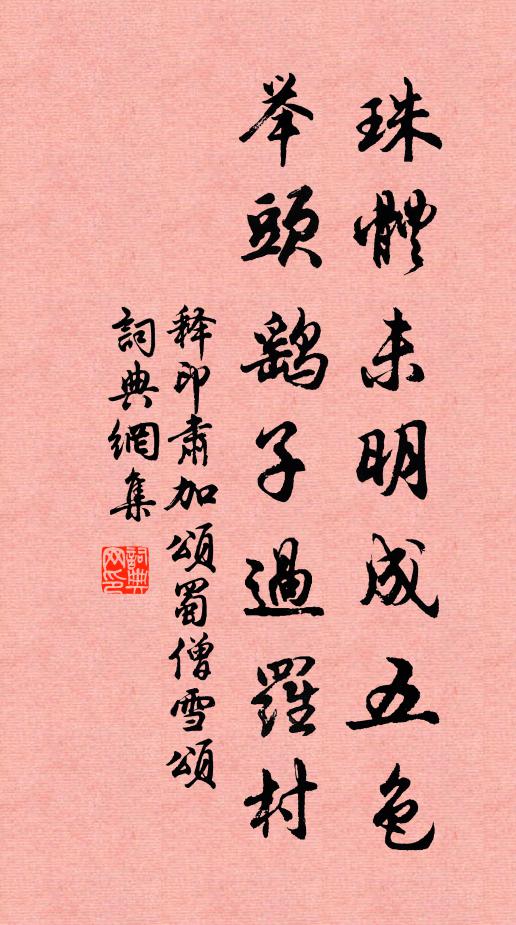 珠體未明成五色
举頭鷂子過羅村
释印肅加頌蜀僧雪頌
詞典網集
詞典网印